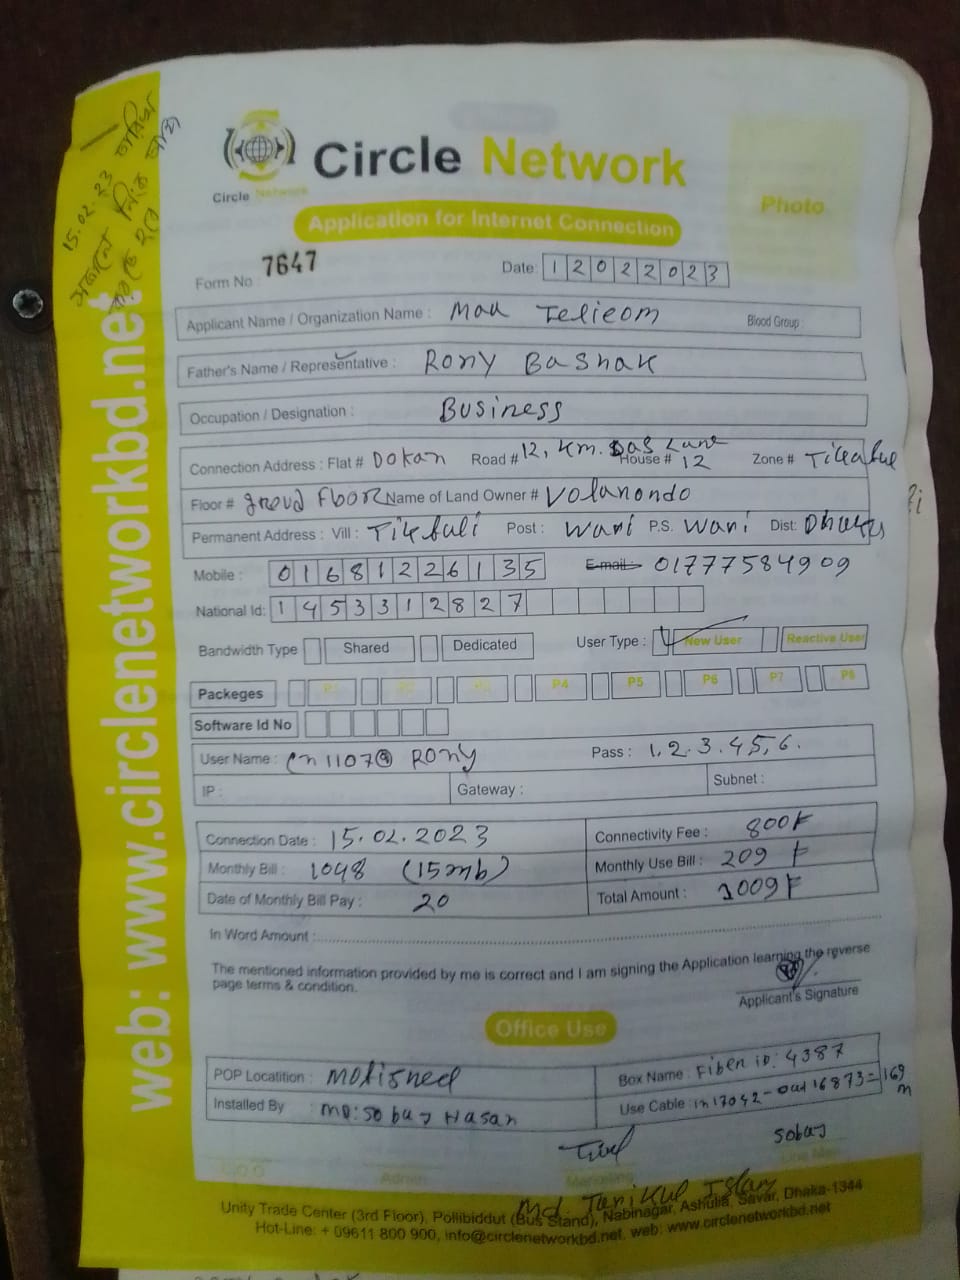 15.02.23
Circle Network
Circle Network
Application for Internet Connection
Photo
Form No : 7647
Date: 12022023
Applicant Name / Organization Name : Maa Telieom Blood Group :
Father's Name / Representative : Rony Bashak
Occupation / Designation : Business
Connection Address : Flat # Dokan Road # 12, Km. Das Lane House # 12 Zone #
Floor # groud Floor Name of Land Owner # Volanondo
Permanent Address : Vill : Post : Wari P.S. Wari Dist:
Mobile : 01681226135 E-mail : 01777584909
National Id: 1453312827
Bandwidth Type Shared Dedicated User Type : New User Reactive User
Packeges P1 P2 P3 P4 P5 P6 P7 P8
Software Id No
User Name : cn1107@ Rony Pass : 1.2.3.4.5,6.
IP : Gateway : Subnet :
Connection Date : 15.02.2023 Connectivity Fee : 800
Monthly Bill : 1048 (15mb) Monthly Use Bill : 209
Date of Monthly Bill Pay : 20 Total Amount : 1009
In Word Amount :
The mentioned information provided by me is correct and I am signing the Application learning the reverse
page terms & condition.
Applicant's Signature
Office Use
POP Locatition : Box Name : Fiber id: 4387
Installed By : MD: Sobuj Hasan Use Cable : in 17042 - out 16873 = 169 m
Sobuj
Admin Marketing Line Man
Md. Tarikul Islam
Unity Trade Center (3rd Floor), Pollibiddut (Bus Stand), Nabinagar, Ashulia, Savar, Dhaka-1344
Hot-Line: + 09611 800 900, info@circlenetworkbd.net, web: www.circlenetworkbd.net
web: www.circlenetworkbd.net